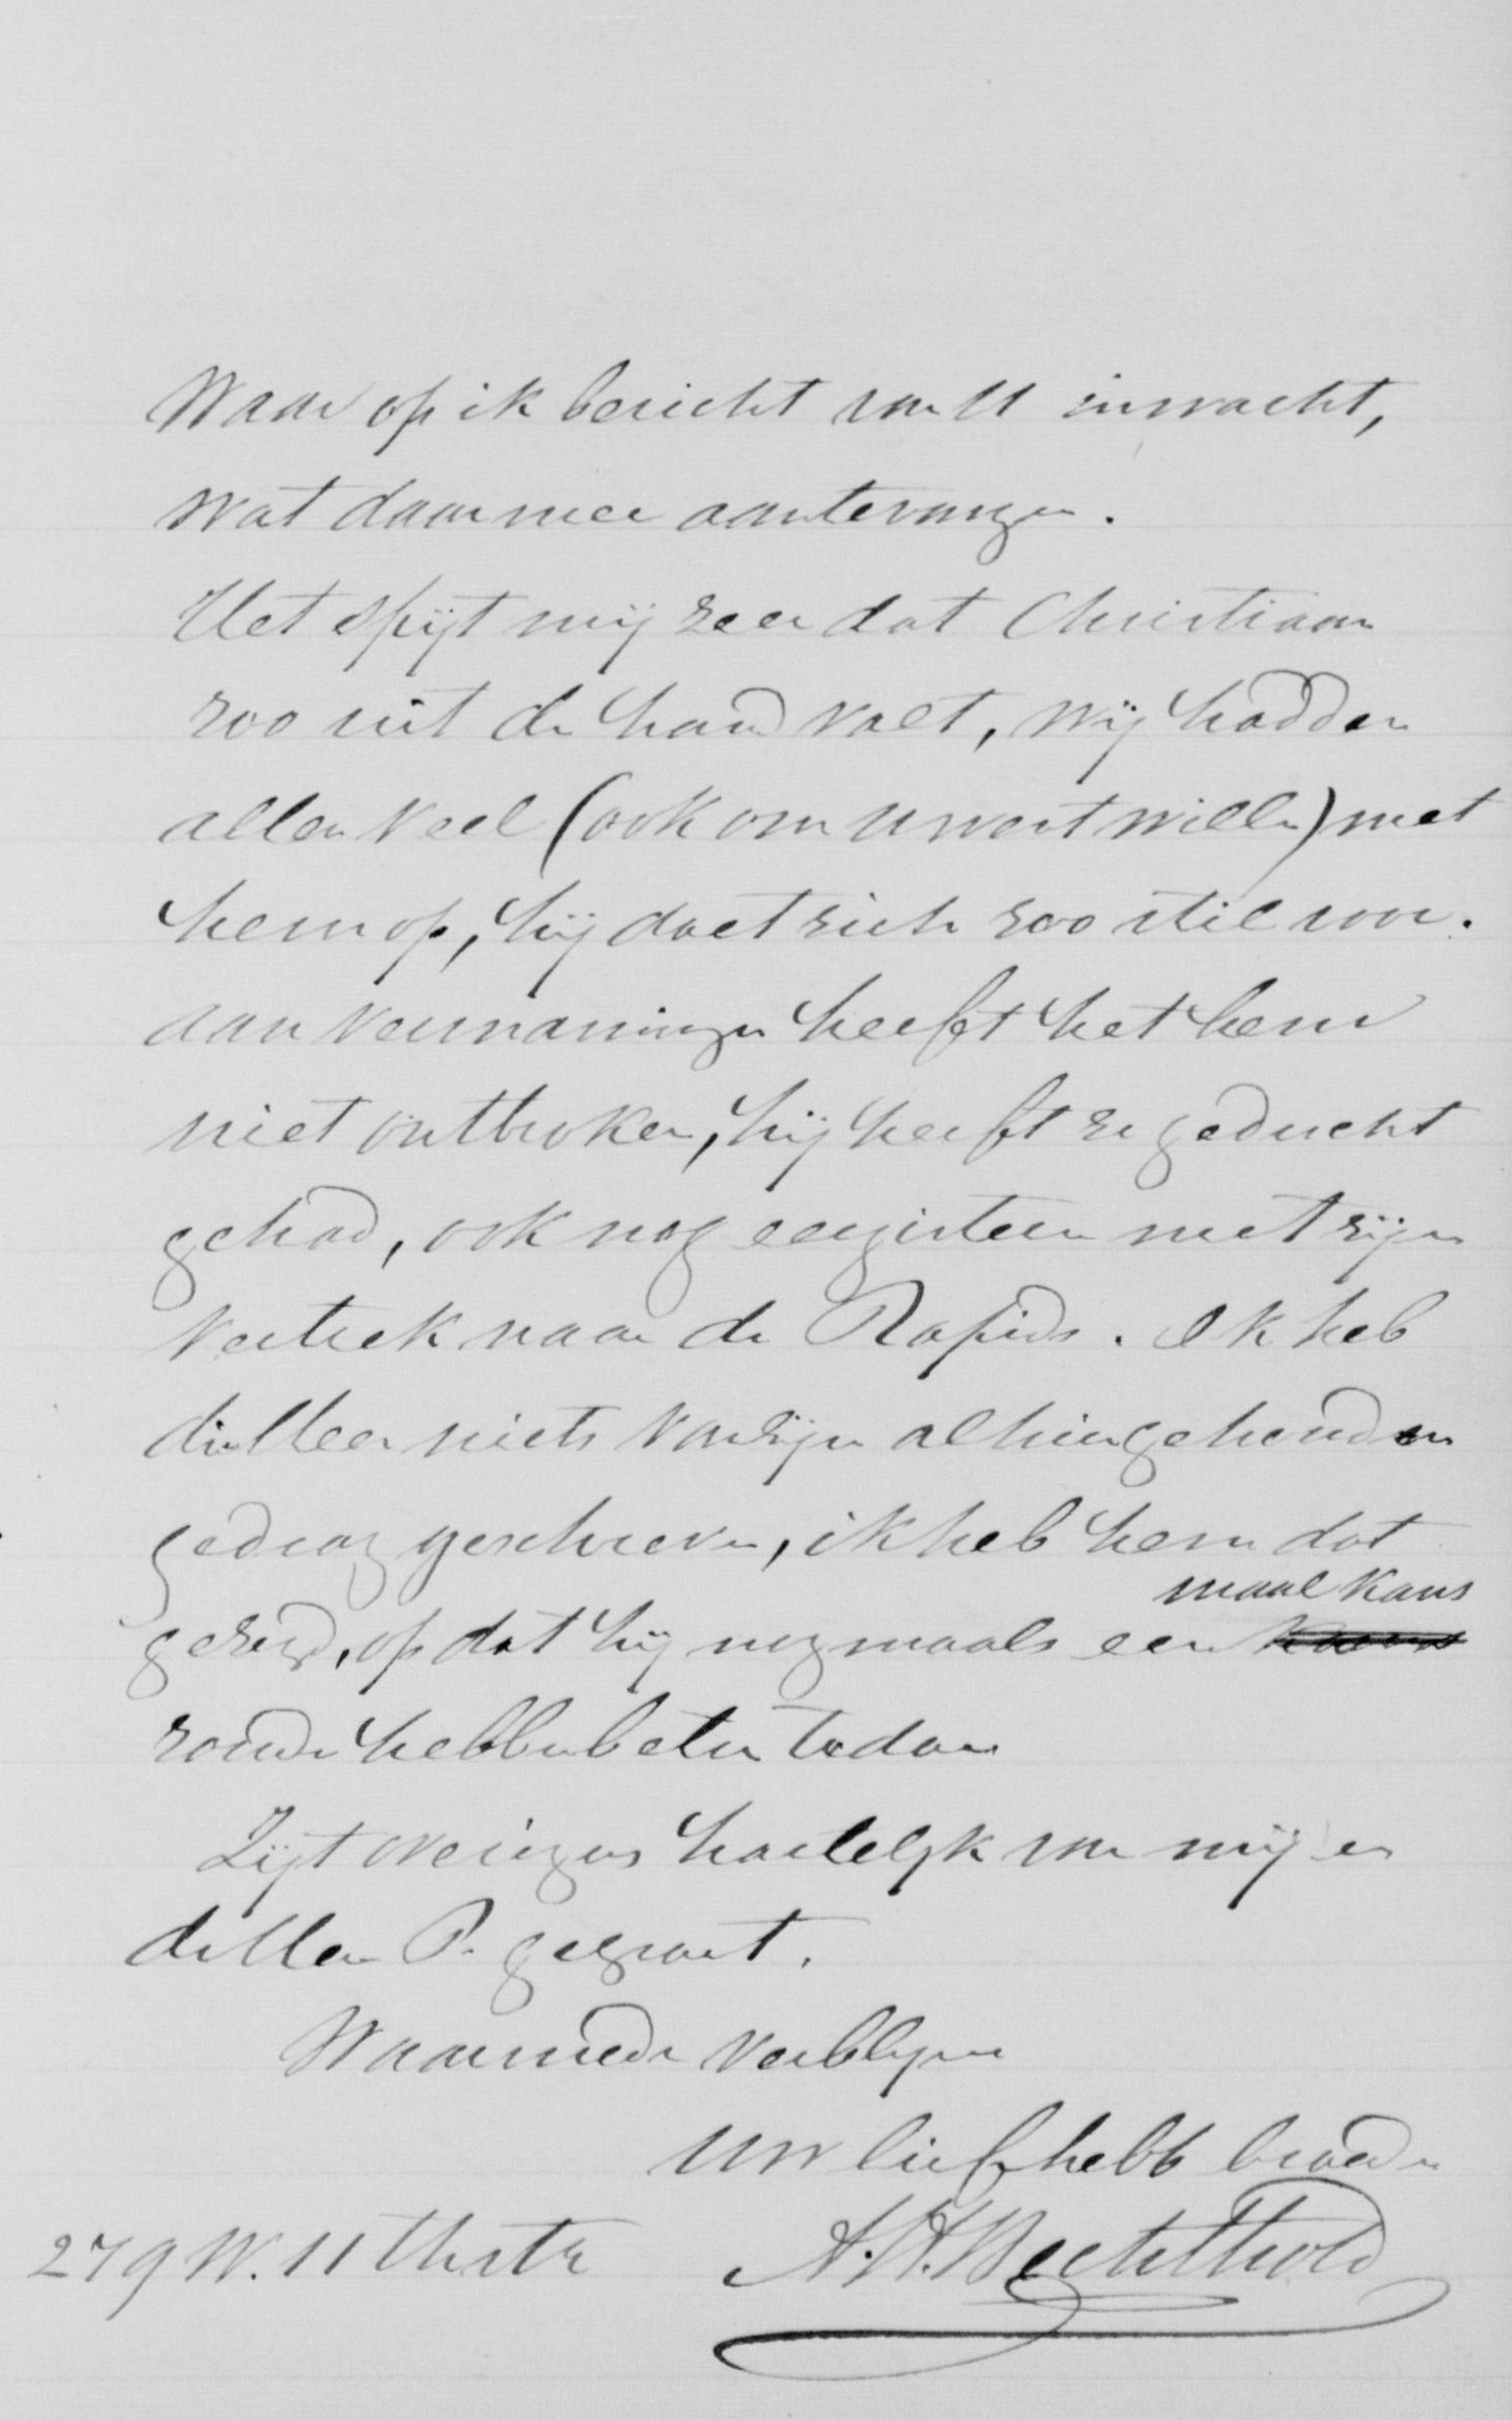 Waar op ik bericht van U inwacht,
wat daarmee aantevangen.
Het spijt mij zeer dat Christiaan
zoo uit de hand valt, wij hadden
allen veel (ook om uwent wille) met
hem op, hij doet zich zoo stil voor.
aan vermaningen heeft het hem
niet ontbroken, hij heeft ze geducht
gehad, ook nog eergisteren met zijn
vertrek naar de Rapids. Ik heb
niets van zijn alhier gehouden
gedrag geschreven, ik heb hem dat
maal kans
gezegd, op dat hij nogmaals een
zoude hebben beter te doen
Zijt overigens hartelijk van mij en
P. gegroet.
Waarmede verblijven
Uw liefhebb broeder
279 W. 11th Str A. H. Bechthold